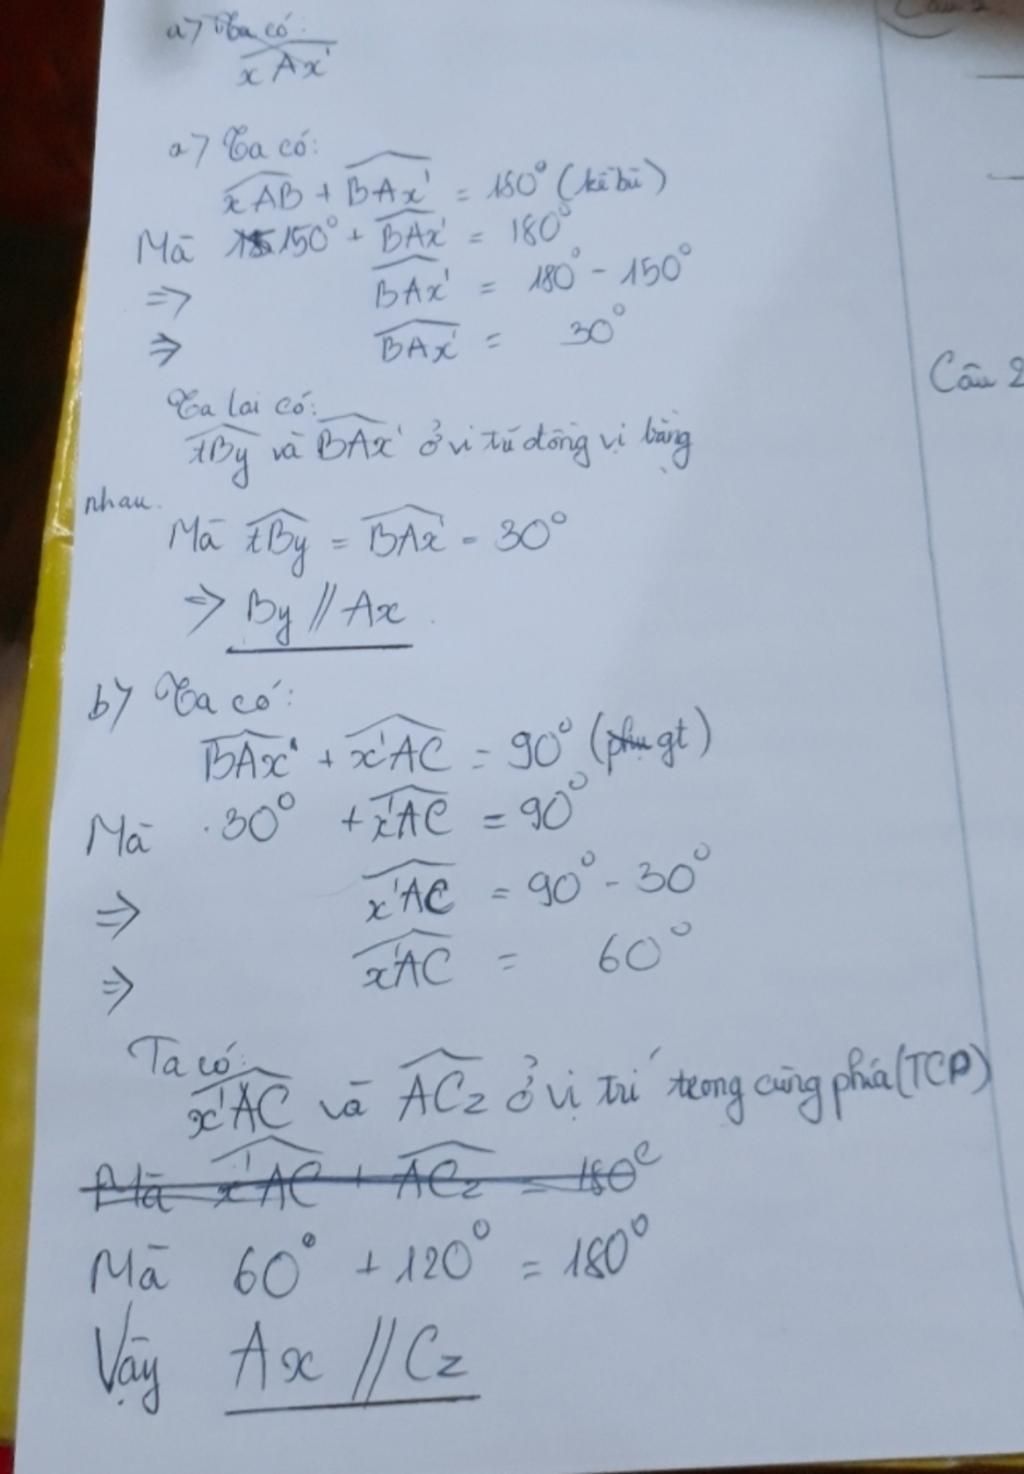 a> Ta có:
xAx'
Câu 2
a> Ta có:
xAB + BAx' = 180° (kề bù)
Mà 150° + BAx' = 180°
=> BAx' = 180° - 150°
=> BAx' = 30°
Câu 2
Ta lại có:
tBy và BAx' ở vị trí đồng vị bằng
nhau.
Mà tBy = BAx' = 30°
=> By // Ax.
b> Ta có:
BAx' + x'AC = 90° (gt)
Mà 30° + x'AC = 90°
=> x'AC = 90° - 30°
=> x'AC = 60°
Ta có:
x'AC và ACz ở vị trí trong cùng phía (TCP)
Mà x'AC + ACz = 180°
Mà 60° + 120° = 180°
Vậy Ax // Cz